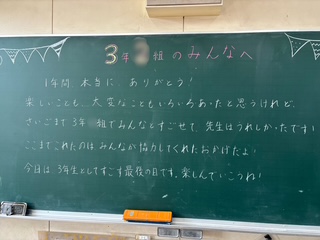 3年 組のみんなへ
1年間 本当に ありがとう！
楽しいことも、大変なこともいろいろあったと思うけれど、
さいごまで3年 組でみんなとすごせて、先生はうれしかったです！
ここまでこれたのはみんなが協力してくれたおかげだよ！
今日は3年生としてすごす最後の日です。楽しんでいこうね！